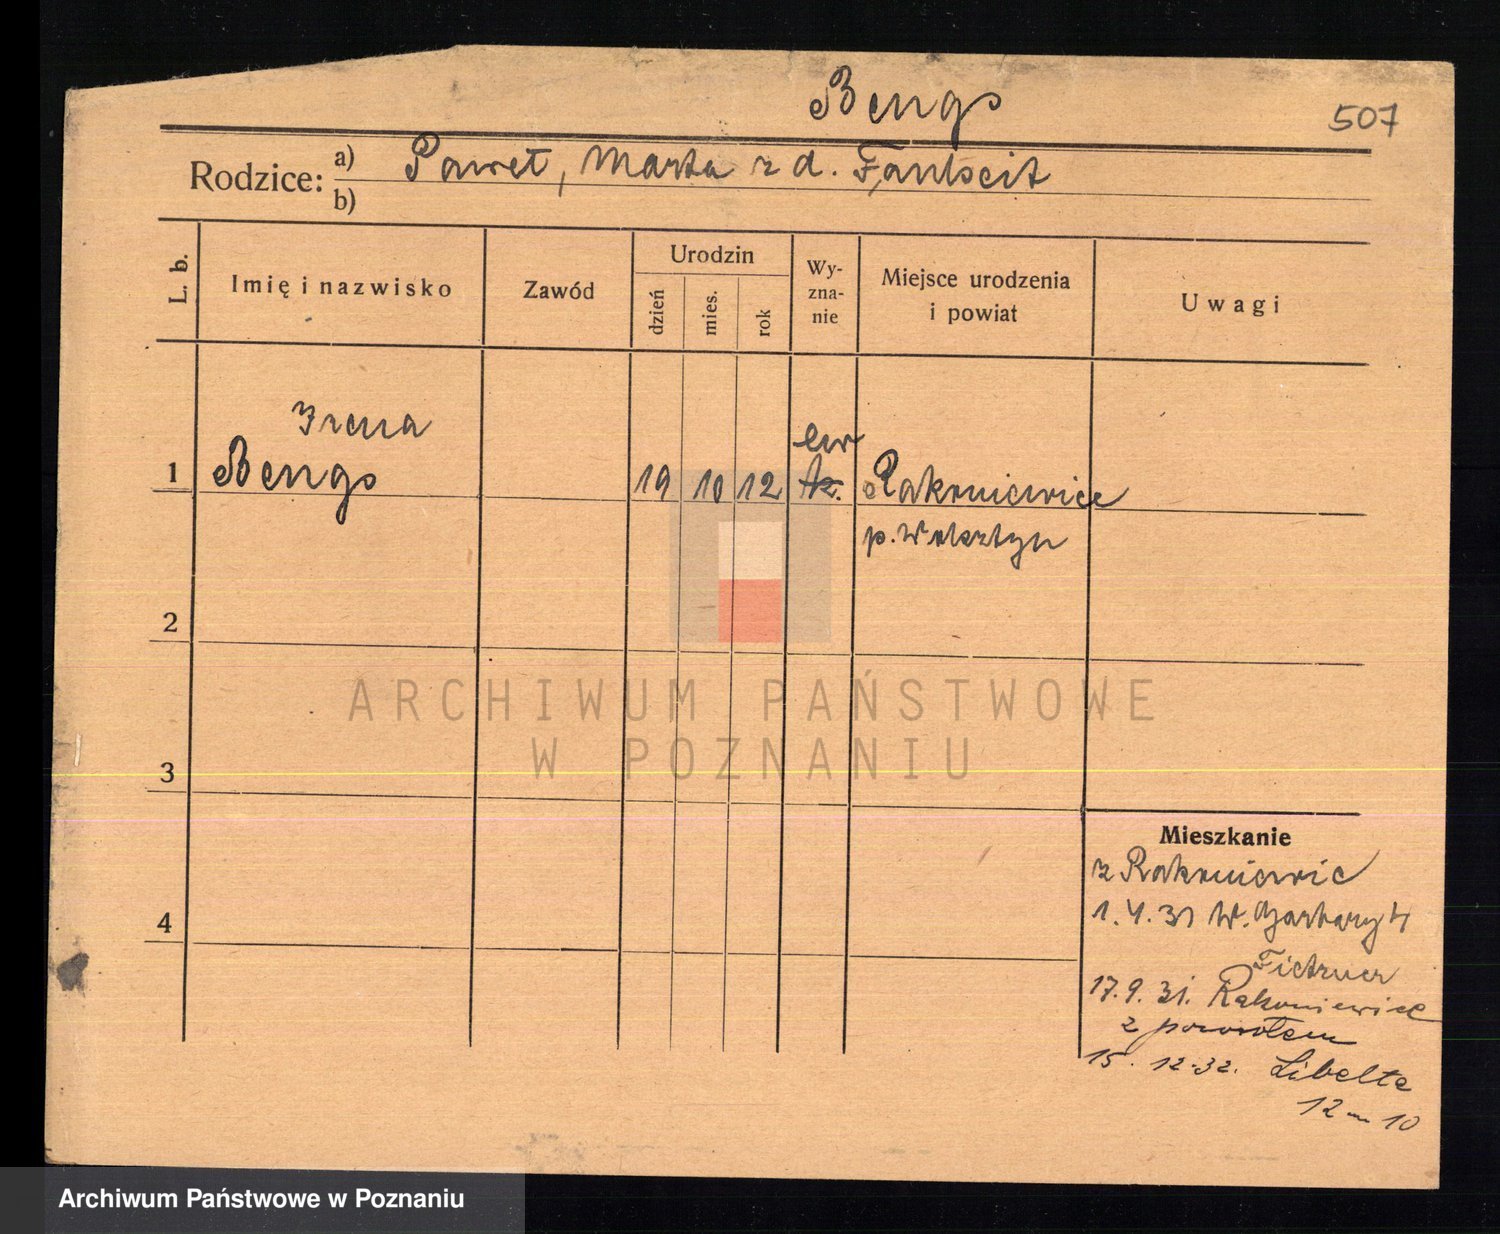 Bengs
507
Rodzice: a) Paweł, Marta z d. Fantscit
b)
L. b.
Imię i nazwisko
Zawód
Urodzin
dzień
mies.
rok
Wy-
zna-
nie
Miejsce urodzenia
i powiat
Uwagi
Irena
1 Bengs 19 10 12 ew Rakoniewice
p. Wolsztyn
2
3
4
Mieszkanie
z Rakoniewic
1.4.31 W. Garbary 4
17.9.31. Rakoniewice
z powrotem
15. 12.32. Libelta
12 m 10
ARCHIWUM PAŃSTWOWE
W POZNANIU
Archiwum Państwowe w Poznaniu